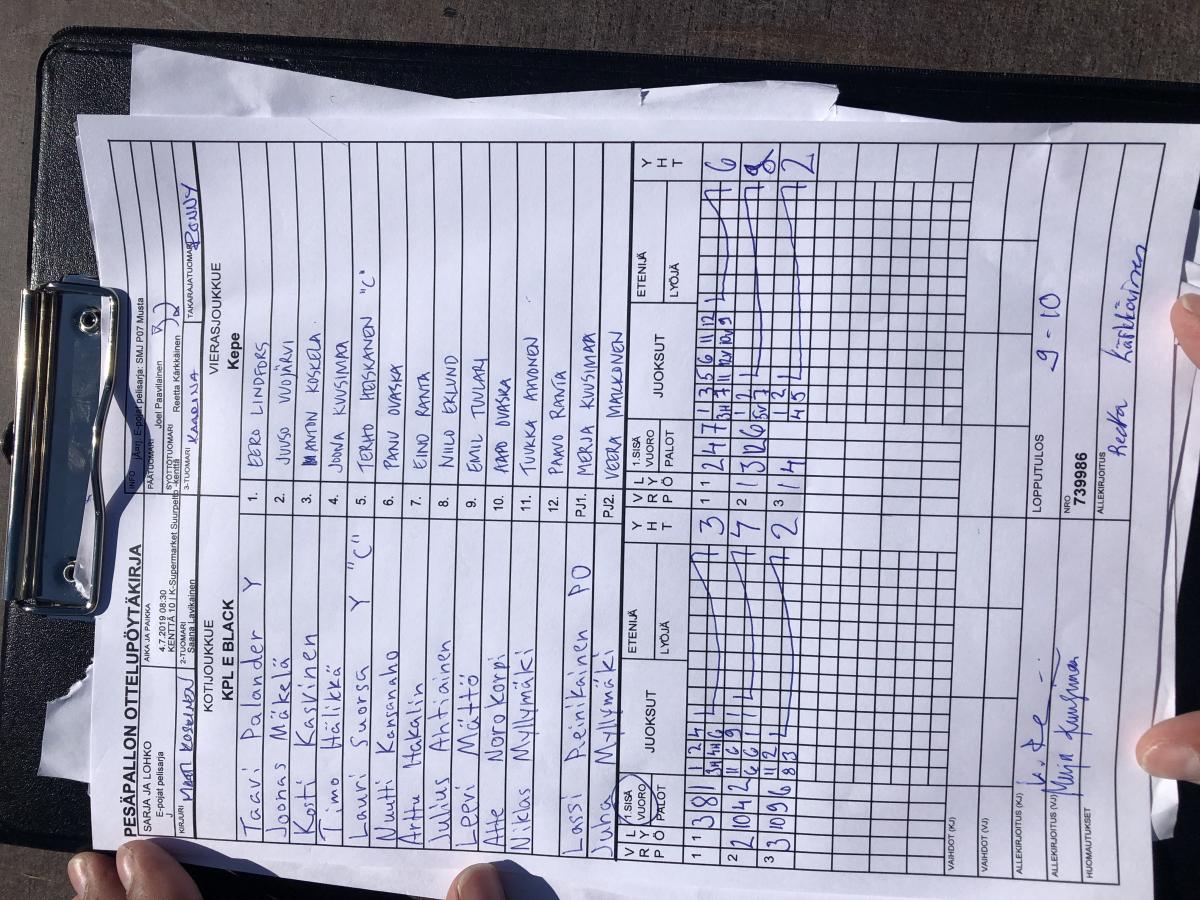 PESÄPALLON OTTELUPÖYTÄKIRJA
SARJA JA LOHKO
E-pojat pelisarja
J
AIKA JA PAIKKA
4.7.2019 08:30
KENTTÄ 10 | K-Supermarket Suurpelto -kenttä
INFO
E-pojat pelisarja: SMJ P07 Musta
PÄÄTUOMARI
Joel Paavilainen
SYÖTTÖTUOMARI
Reetta Kärkkäinen
KIRJURI
2-TUOMARI
Saana Lavikainen
3-TUOMARI KAARINA
TAKARAJATUOMARI RONNY
KOTIJOUKKUE
KPL E BLACK
VIERASJOUKKUE
Kepe
Taavi Palander Y 1. EERO LINDFORS
Joonas Mäkelä 2. JUUSO VUOJÄRVI
Kosti Kaskinen 3. ANTON KOSKELA
Timo Hälikkä 4. JOONA KUUSIMAA
Lauri Suorsa Y "C" 5. TERHO HEISKANEN "C"
Nuutti Kansanaho 6. PANU OVASKA
Arttu Hakalin 7. EINO RANTA
Julius Ahtiainen 8. NIILO EKLUND
Leevi Mättö 9. EMIL TUULARI
Atte Norokorpi 10. AAPO OVASKA
Niklas Myllymäki 11. TUUKKA AHVONEN
12. PAAVO RANTA
Lassi Reinikainen PO PJ1. MERJA KUUSIMAA
Juha Myllymäki PJ2. VEERA MAUKONEN
V R P L Y Ö 1.SISÄ VUORO PALOT JUOKSUT ETENIJÄ LYÖJÄ Y H T V R P L Y Ö 1.SISÄ VUORO PALOT JUOKSUT ETENIJÄ LYÖJÄ Y H T
1 1 3 8 1 1 2 4 3 1 1 2 4 7 1 3 5 6 11 12 6
2 2 10 4 2 4 2 1 3 12 6 1 2
3 3 10 9 6 1 2 2 3 1 4 1 2 2
8 3 4 5
VAIHDOT (KJ)
VAIHDOT (VJ)
ALLEKIRJOITUS (KJ)
LOPPUTULOS 9 - 10
ALLEKIRJOITUS (VJ) Merja Kuusimaa
NRO
739986
HUOMAUTUKSET
ALLEKIRJOITUS
Reetta Kärkkäinen